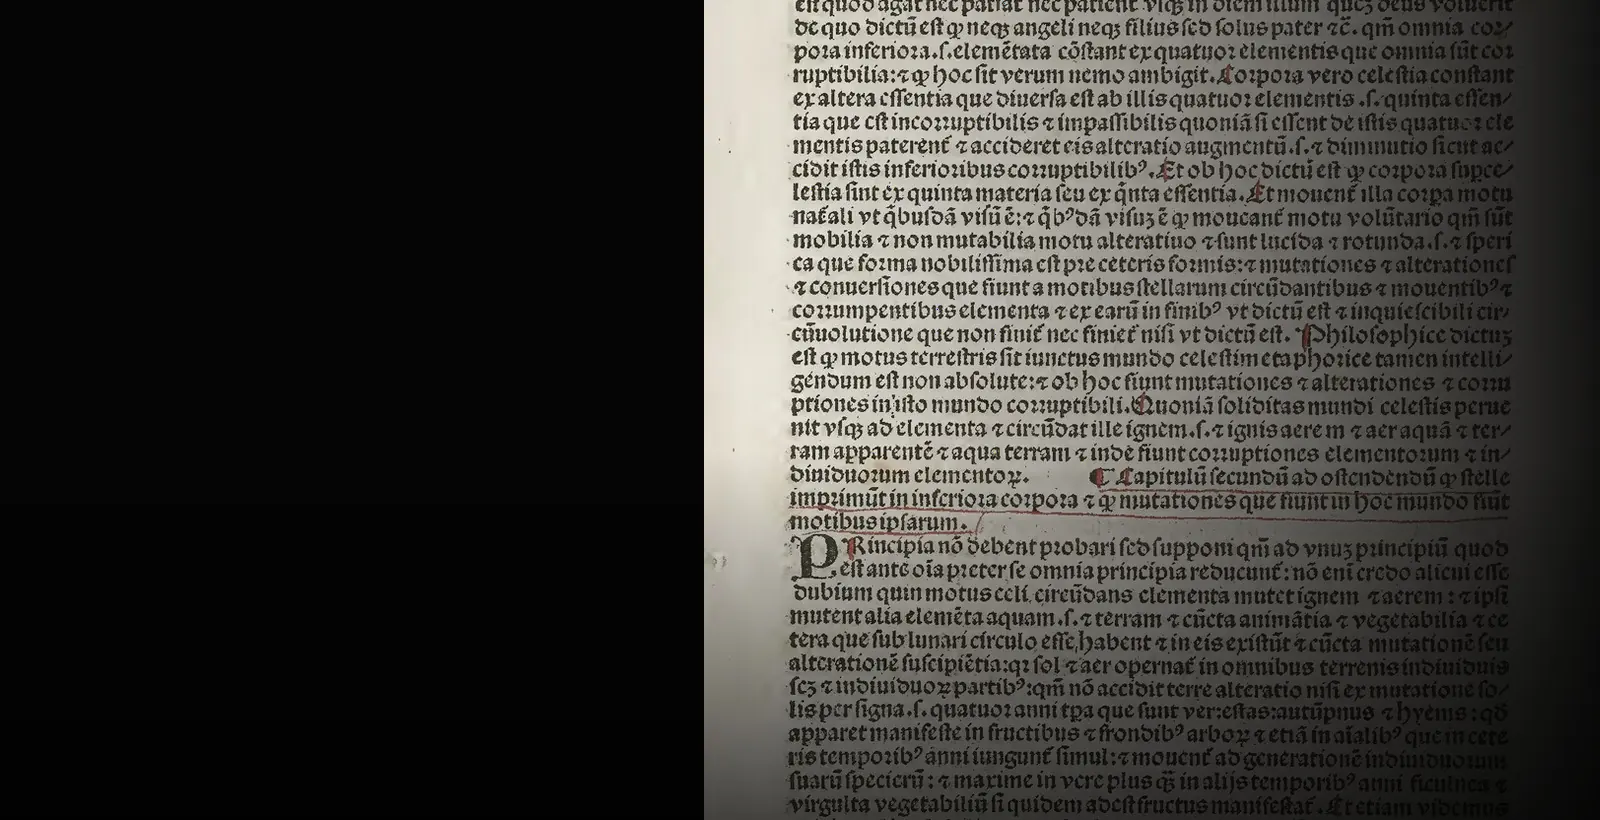 est quod agat nec patiat̃ nec patient̃ vsq̃ in diem illum quẽ deus voluerit
de quo dictũ est ꝙ neq̃ angeli neq̃ filius sed solus pater ⁊c̃. qm̃ omnia cor/
pora inferiora.s.elemẽtata cõstant ex quatuor elementis que omnia sũt cor
ruptibilia:⁊ ꝙ hoc sit verum nemo ambigit.Corpora vero celestia constant
ex altera essentia que diuersa est ab illis quatuor elementis .s. quinta essen/
tia que est incorruptibilis ⁊ impassibilis quoniã si essent de istis quatuor ele
mentis paterent̃ ⁊ accideret eis alteratio augmentũ.s.⁊ diminutio sicut ac/
cidit istis inferioribus corruptibilibꝰ.Et ob hoc dictũ est ꝙ corpora supce/
lestia sint ex quinta materia seu ex q̃nta essentia.Et mouent̃ illa corpa motu
nat̃ali vt q̃busdã visũ ẽ:⁊ q̃bꝰdã visuȝ ẽ ꝙ moueant̃ motu volũtario qm̃ sũt
mobilia ⁊ non mutabilia motu alteratiuo ⁊ sunt lucida ⁊ rotunda.s.⁊ speri
ca que forma nobilissima est pre ceteris formis:⁊ mutationes ⁊ alterationes
⁊ conuersiones que fiunt a motibus stellarum circũdantibus ⁊ mouentibꝰ ⁊
corrumpentibus elementa ⁊ ex earũ in finibꝰ vt dictũ est ⁊ inquiescibili cir/
cũuolutione que non finit̃ nec finiet̃ nisi vt dictũ est. Philosophice dictuȝ
est ꝙ motus terrestris sit iunctus mundo celesti metaphorice tamen intelli/
gendum est non absolute:⁊ ob hoc fiunt mutationes ⁊ alterationes ⁊ corru
ptiones in isto mundo corruptibili.Quoniã soliditas mundi celestis perue
nit vsq̃ ad elementa ⁊ circũdat ille ignem.s.⁊ ignis aerem ⁊ aer aquã ⁊ ter/
ram apparentẽ ⁊ aqua terram ⁊ inde fiunt corruptiones elementorum ⁊ in/
diuiduorum elementoꝝ. ¶ Capitulũ secundũ ad ostendendũ ꝙ stelle
imprimũt in inferiora corpora ⁊ ꝙ mutationes que fiunt in hoc mundo fiũt
motibus ipsarum.
PRincipia nõ debent probari sed supponi qm̃ ad vnuȝ principiũ quod
est ante oĩa preter se omnia principia reducunt̃: nõ enĩ credo alicui esse
dubium quin motus celi circũdans elementa mutet ignem ⁊ aerem : ⁊ ipsi
mutent alia elemẽta aquam.s.⁊ terram ⁊ cũcta animãtia ⁊ vegetabilia ⁊ ce
tera que sub lunari circulo esse habent ⁊ in eis existũt ⁊ cũcta mutationẽ seu
alterationẽ suscipiẽtia:qꝛ sol ⁊ aer opernat̃ in omnibus terrenis indiuiduis
scȝ ⁊ indiuiduoꝝ partibꝰ:qm̃ nõ accidit terre alteratio nisi ex mutatione so/
lis per signa.s. quatuor anni tp̃a que sunt ver:estas:autũpnus ⁊ hyems : qd̃
apparet manifeste in fructibus ⁊ frondibꝰ arboꝝ ⁊ etiã in aĩalibꝰ que in cete
ris temporibꝰ anni iungunt̃ simul:⁊ mouent̃ ad generationẽ indiuiduorum
suarũ specierũ : ⁊ maxime in vere plus q̃ȝ in alijs temporibꝰ anni ficulnea ⁊
virgulta vegetabiliũ si quidem adest fructus manifestat̃. Et etiam videmus